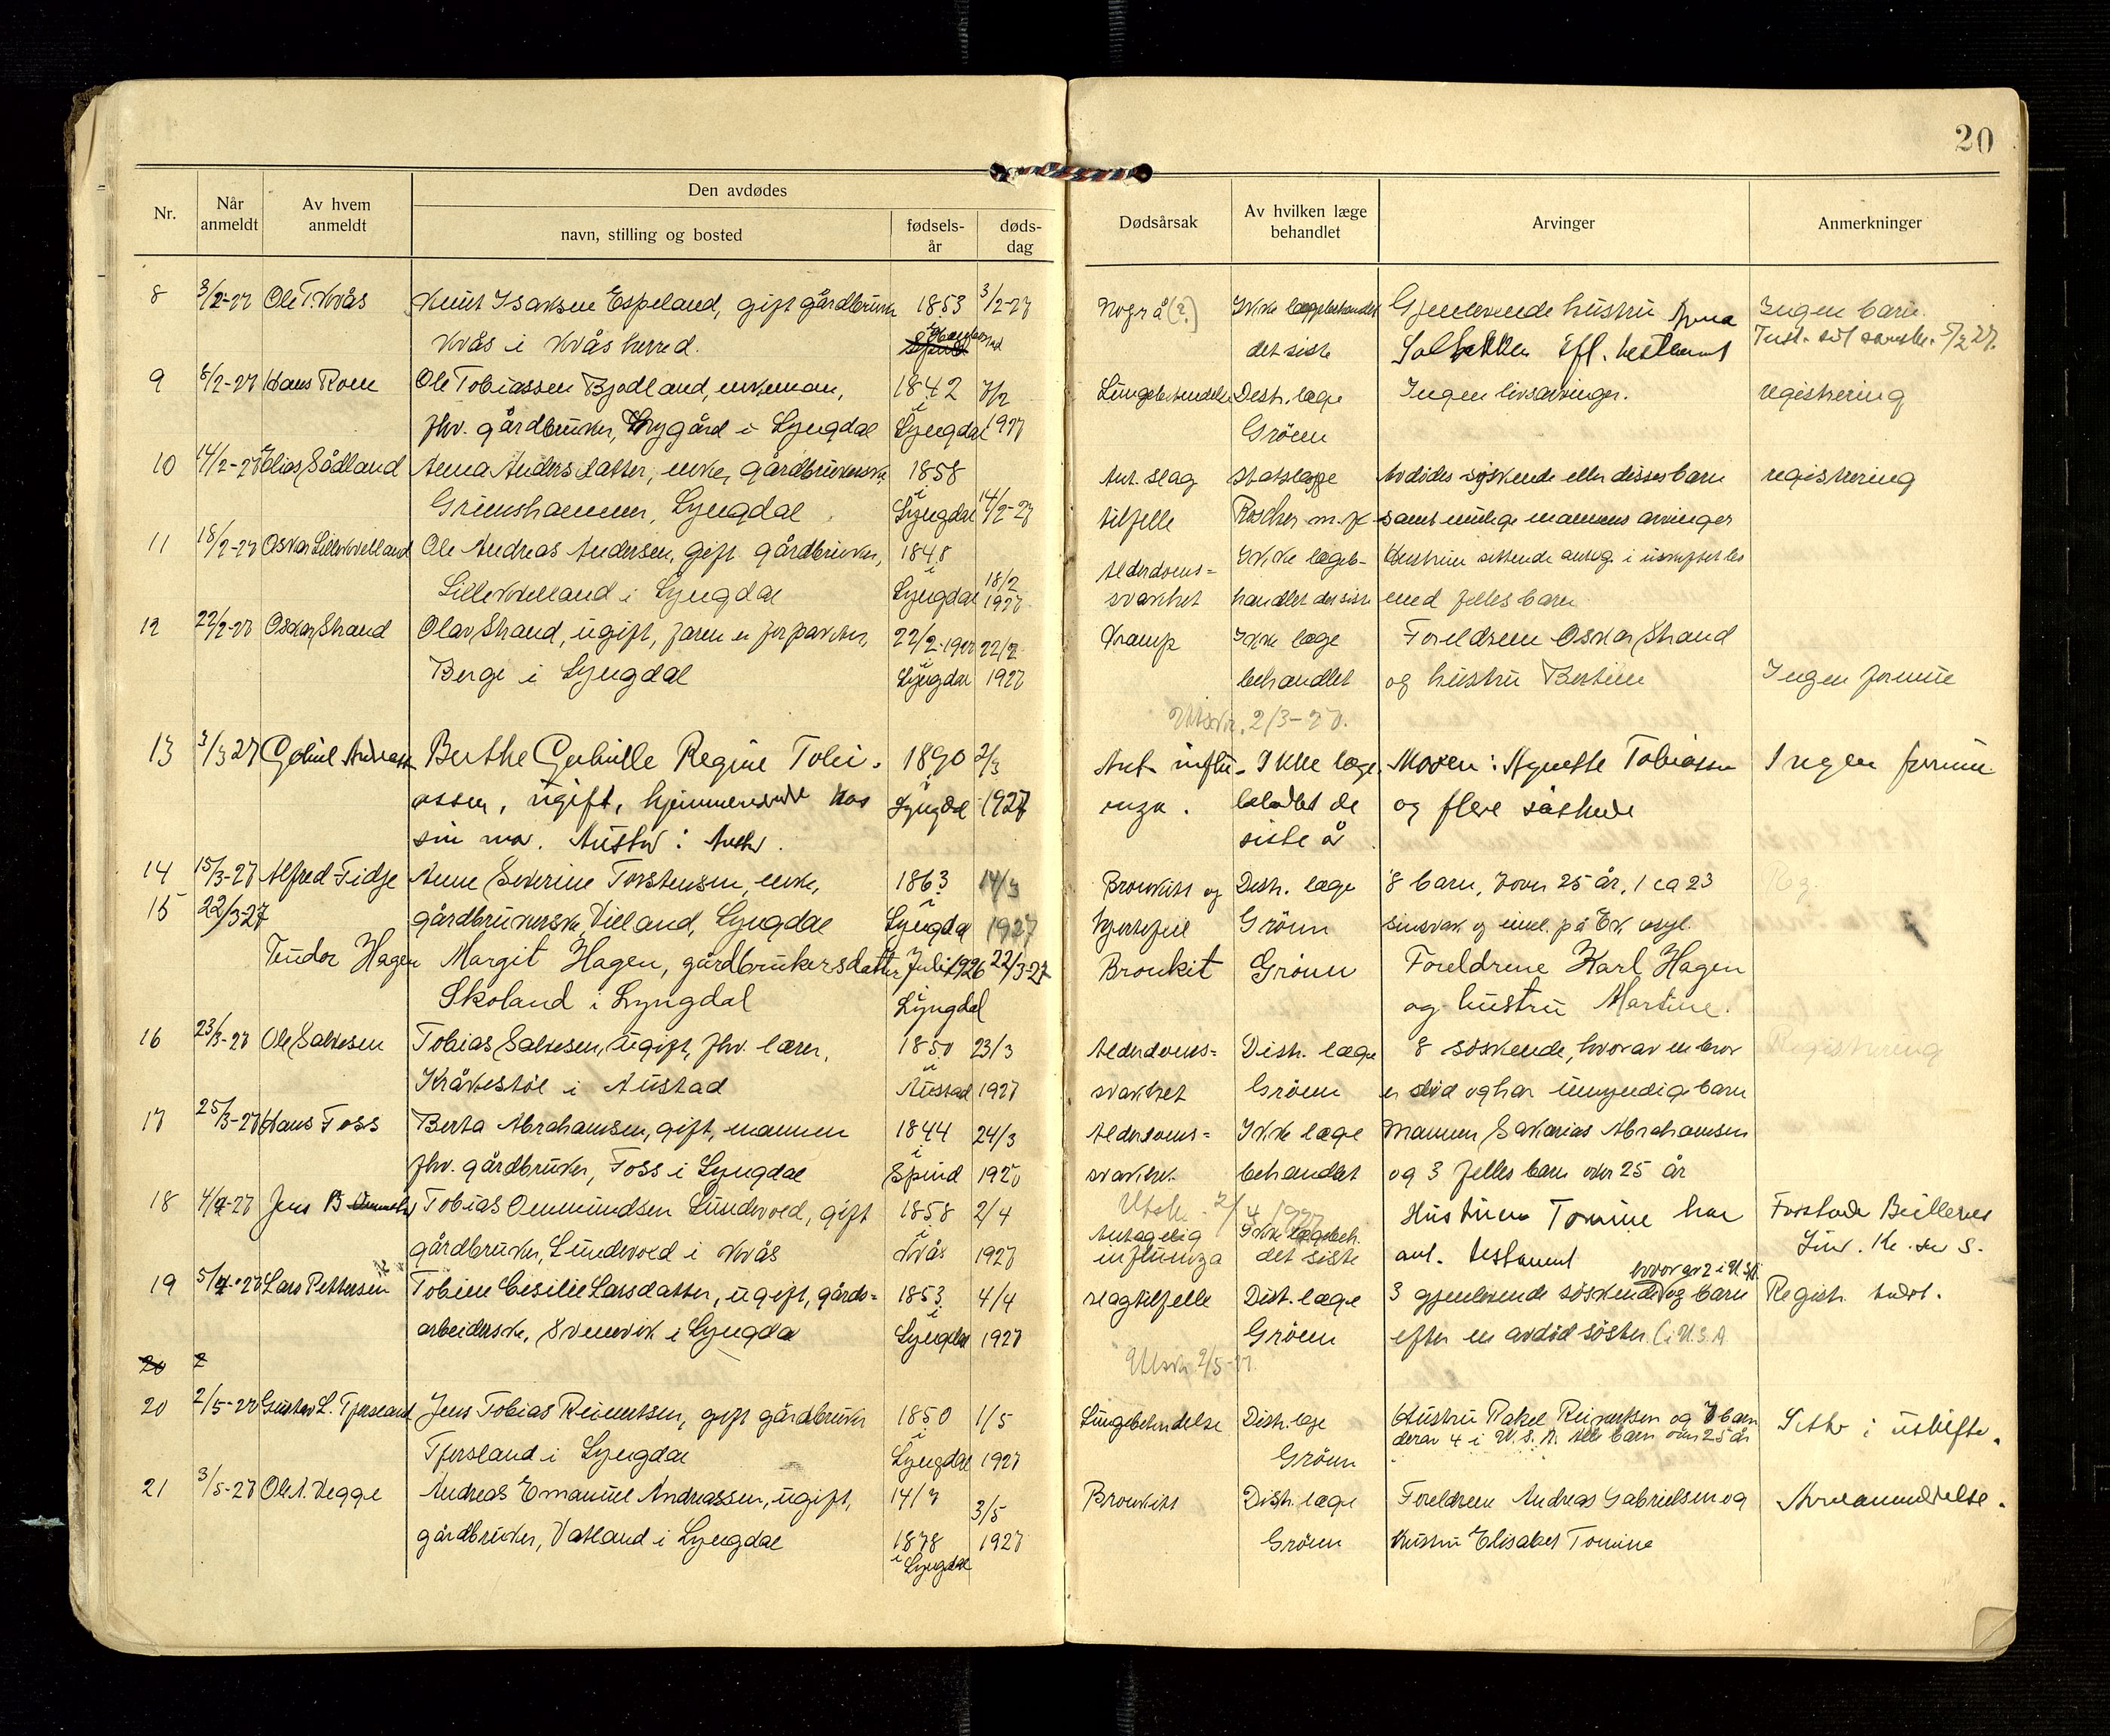 20
Nr.
Når anmeldt
Av hvem anmeldt
Den avdødes
navn, stilling og bosted
fødsels-år
døds-dag
Dødsårsak
Av hvilken læge behandlet
Arvinger
Anmerkninger
8 3/2-27 Ole T. Kvås Knut Isaksen Espeland, gift gårdbruker 1853 3/2-27 Ikke lægebehandlet Gjenlevende hustru Ingen barn.
Kvås i Kvås herred. det siste
9 8/2-27 Hans Rom Ole Tobiassen Bjodland, enkeman, 1842 7/2 Lungebetendelse Distr. læge Ingen livsarvinger. registrering
fhv. gårdbruker, Lyngdal i Lyngdal 1927 Grönn
10 14/2-27 Elias Sådland Anna Andersdatter, enke, gårdbrukerske 1858 Ant. slag statslæge Avdødes søskende eller disses barn registrering
Grimshammer, Lyngdal i Lyngdal 14/2-27 tilfelle samt mulige mannens arvinger
11 18/2-27 Oskar Lillekvelland Ole Andreas Andersen, gift gårdbruker, 1848 Alderdoms= Ikke lægeb-
Lillekvelland i Lyngdal i Lyngdal 18/2 1927 svakhet handlet det siste med felles barn
12 22/2-27 Oskar Strand Olav Strand, ugift, faren er forpakter, 22/2-1927 22/2 Kramp Ikke læge Foreldrene Oskar Strand
Berge i Lyngdal i Lyngdal 1927 behandlet og hustru Bertine Ingen formue
Utskr. 2/3-27.
13 3/3 27 Gabriel Andreassen Berthe Gabrille Regine Tobi- 1890 2/3 Ant. influ- Ikke læge- Moren: Agnethe Tobiassen Ingen formue
assen, ugift, hjemmeværende hos i Lyngdal 1927 enza. behandlet de og flere søskende
sin mor. siste år
14 15/3-27 Alfred Fidje Anne Severine Torstensen, enke, 1863 14/3 Bronkitt og Distr. læge 8 barn, 7 over 25 år, 1 ca 23
15 22/3-27 gårdbrukerske, Villand, Lyngdal i Lyngdal 1927 hjertefeil Grönn
Teudor Hagen Margit Hagen, gårdbrukersdatter Juli 1926 22/3-27 Bronkit Grönn Foreldrene Karl Hagen
Skoland i Lyngdal i Lyngdal og hustru Martine.
16 23/3-27 Ole Salvesen Tobias Salvesen, ugift, fhv. lærer, 1850 23/3 Alderdoms= Distr. læge 8 søskende, hvorav en bror Registrering
Kråkestøl i Austad i Austad 1927 svakhet Grönn er død og har umyndige barn
17 25/3-27 Hans Foss Berta Abrahamsen, gift, mannen 1844 24/3 Alderdoms= Ikke læge Mannen Sakarias Abrahamsen
fhv. gårdbruker, Foss i Lyngdal i Spind 1927 svakhet. behandlet og 3 felles barn over 25 år
Utskr. 2/4 1927
18 4/4-27 Jens B. Tobias Ommundsen Lundevold, gift 1858 2/4 Antagelig Ikke lægebeh. Hustruen Tomine har
gårdbruker, Lundevold i Kvås i Kvås 1927 influenza det siste ant. testament
19 5/4-27 Lars Pettersen Tobine Cesilie Larsdatter, ugift, gårds= 1853 4/4 slagtilfelle Distr. læge 3 gjenlevende søskende hvorav 2 i U.S.A. og barn Registr.
arbeiderske, Svenevik i Lyngdal i Lyngdal 1927 Grönn efter en avdød søster (i U.S.A
20 2
Utskr. 2/5-27.
20 2/5-27 Gustav L. Tjersland Jens Tobias Reinertsen, gift gårdbruker 1850 1/5 Lungebetendelse Distr. læge Hustru Rakel Reinertsen og 7 barn
derav 4 i U.S.A. Alle barn over 25 år
Tjersland i Lyngdal i Lyngdal 1927 Grönn
21 3/5-27 Ole A. Vegge Andreas Emanuel Andreassen, ugift, 14/7 3/5 Bronkitt Distr. læge Foreldrene Andreas Gabrielsen og
gårdbruker, Vatland i Lyngdal 1878 i Lyngdal 1927 Grönn hustru Elisabet Tomine